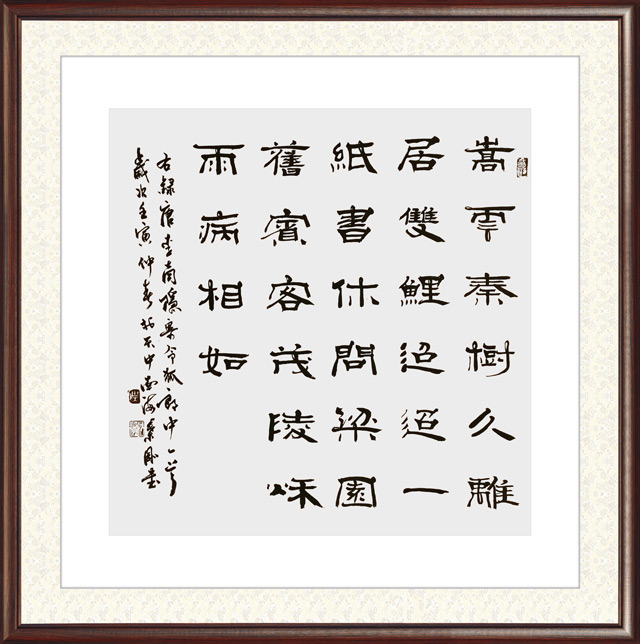 嵩雲秦樹久離
居雙鯉迢迢一
紙書休問梁園
舊賓客茂陵秌
雨病相如
右録唐李商隱寄令狐郎中一首
歲次壬寅仲春於京中南海